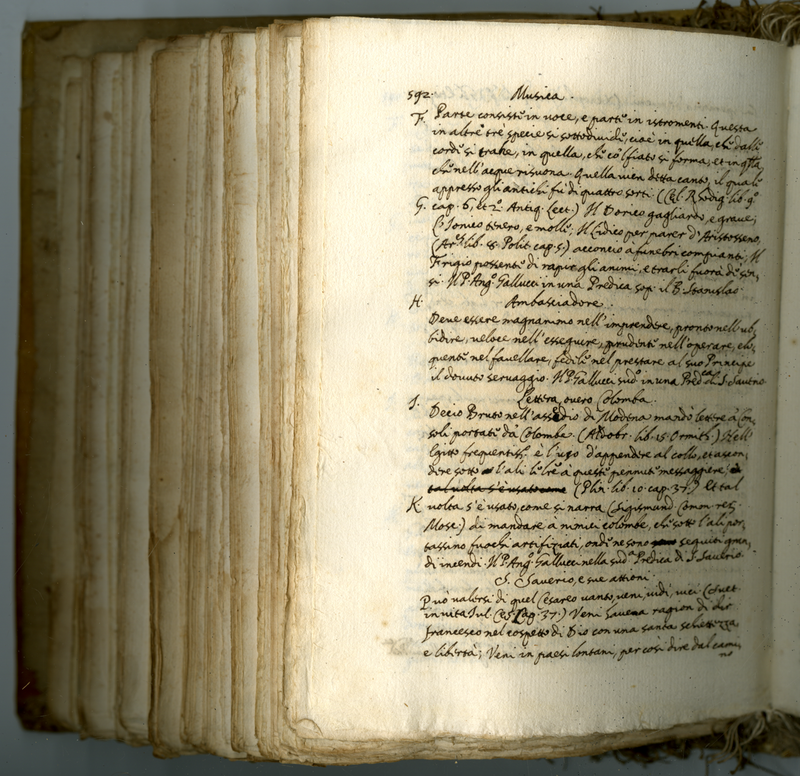 592. Musica.
F. Parte consiste in voce, e parte in istromenti. Questa
in altre trè specie si sottodivide, cioè in quella, che dalle
corde si trahe, in quella, che col fiato si forma, et in qlla,
che nell'acque risuona. Quella vien detta canto, il quale
appresso gli antichi fù di quattro sorti. (Cel. Rhodig. lib. 9.
G. cap. 6, et 2. Antiq. Lect.) Il Dorico gagliardo, e grave;
l'Ionico tenero, e molle; Il Lidico per parer d'Aristosseno,
(Ar. lib. 8. Polit. cap. 5.) acconcio a funebri compianti; Il
Frigio possente di rapir gli animi, e trarli fuora de sen,
si. Il P. Ang. Gallucci in una Predica sop. il B. Stanislao.
H. Ambasciadore.
Deve essere magnanimo nell'imprendere, pronto nell'ub,
bidire, veloce nell'esseguire, prudente nell'operare, elo,
quente nel favellare, fedele nel prestare al suo Principe
il dovuto servaggio. Il P. Gallucci sud. in una Pred.ca di S. Saverio
I. Lettera, overo Colomba.
Decio Bruto nell'assedio di Modena mandò lettere à Con,
soli portate da Colombe. (Aldobr. lib. 15. Ornith.) Nell'
Egitto frequentiss. è l'uso d'appendere al collo, et ascon,
dere sotto l'ali lettre à queste pennute messaggiere;
tal volta s'è usato come (Plin. lib. 10. cap. 37.) Et tal
K. volta s'è usato, come si narra (Sigismund. Comon. res.
Mosc.) di mandare à nimici colombe, che sotto l'ali por,
tassino fuochi artifiziati, onde ne sono seguiti gran,
di incendi. Il P. Ang. Gallucci nella sud.a Predica di S. Saverio.
S. Saverio, e sue attioni.
Può valersi di quel Cesareo vanto, veni, vidi, vici (Suet.
in vita Jul. Ces. Cap. 37.) Veni Saverio a ragion di dir
Francesco nel cospetto di Dio con una santa schettezza
e libertà; Veni in paesi lontani, per così dire dal cami,
no